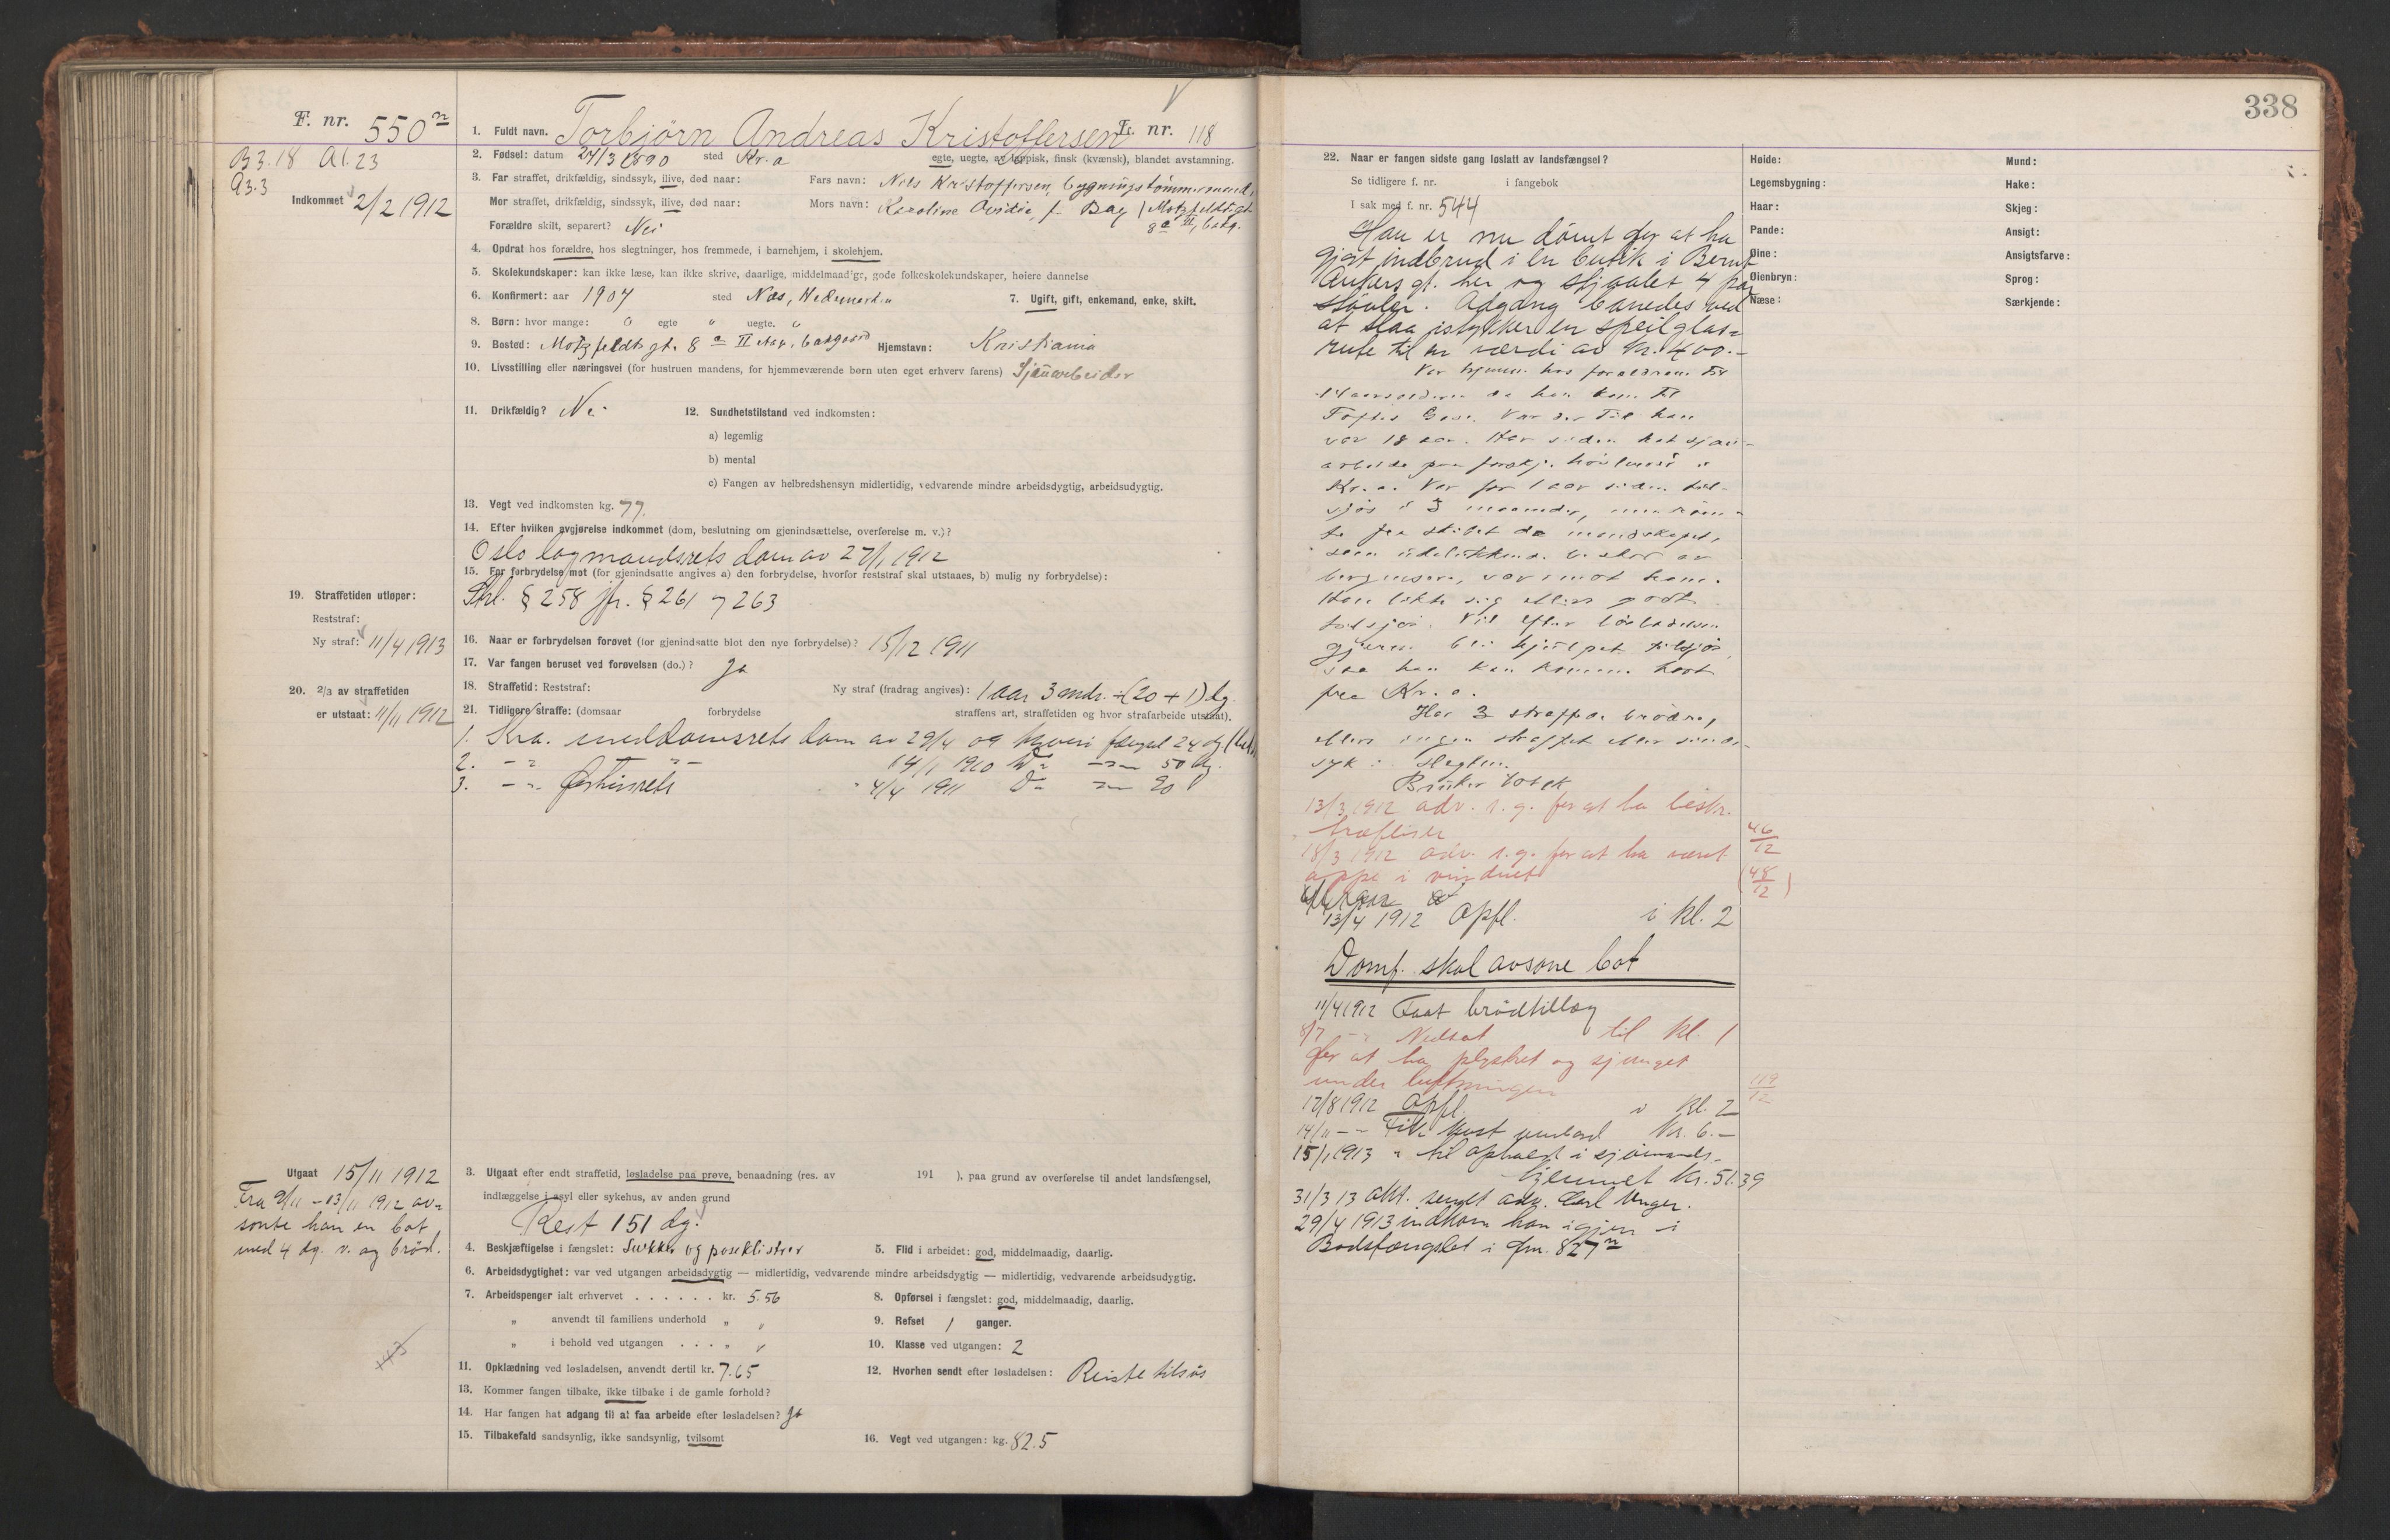 F. nr. 550 n
B3.18 A1.23
A3.3
Indkommet 2/2 1912
1. Fuldt navn. Torbjörn Andreas Kristoffersen L. nr. 118
2. Fødsel: datum 24/3 1890 sted Kr.a egte, uegte, av lappisk, finsk (kvænsk), blandet avstamning.
3. Far straffet, drikfældig, sindssyk, ilive, død naar: Fars navn: Nils Kristoffersen, bygningstømmermand,
Mor straffet, drikfældig, sindssyk, ilive, død naar: Mors navn: Karoline Ovidia, f. Bay / Motzfeldtsgt.
8a II, bakg.
Forældre skilt, separert? Nei
4. Opdrat hos forældre, hos slegtninger, hos fremmede, i barnehjem, i skolehjem.
5. Skolekundskaper: kan ikke læse, kan ikke skrive, daarlige, middelmaadige, gode folkeskolekundskaper, høiere dannelse
6. Konfirmert: aar 1907 sted Næs, Hedemarken 7. Ugift, gift, enkemand, enke, skilt.
8. Børn: hvor mange: 0 egte " uegte. "
9. Bosted: Motzfeldts gt. 8a II bakgaard Hjemstavn: Kristiania
10. Livsstilling eller næringsvei (for hustruen mandens, for hjemmeværende børn uten eget erhverv farens) Sjauarbeider
11. Drikfældig? Nei 12. Sundhetstilstand ved indkomsten:
a) legemlig
b) mental
c) Fangen av helbredshensyn midlertidig, vedvarende mindre arbeidsdygtig, arbeidsudygtig.
13. Vegt ved indkomsten kg. 77.
14. Efter hvilken avgjørelse indkommet (dom, beslutning om gjenindsættelse, overførelse m. v.)?
Oslo lagmandsrets dom av 27/1 1912
15. For forbrydelse mot (for gjenindsatte angives a) den forbrydelse, hvorfor reststraf skal utstaaes, b) mulig ny forbrydelse):
Strl. § 258 jfr. § 261 og 263
19. Straffetiden utløper:
Reststraf:
Ny straf: 11/4 1913
16. Naar er forbrydelsen forøvet (for gjenindsatte blot den nye forbrydelse)? 15/12 1911
17. Var fangen beruset ved forøvelsen (do.)? Ja
18. Straffetid: Reststraf: Ny straf (fradrag angives): 1 aar 3 mdr. ÷ (20 + 1) dg.
20. 2/3 av straffetiden
er utstaat: 11/11 1912
21. Tidligere straffe: (domsaar forbrydelse straffens art, straffetiden og hvor strafarbeide utstaat).
1. Kra. meddomsrets dom av 29/4 09 tyveri fængsel 24 dg.
2. -"- -"- 14/1 1910 Do -"- 50 dg.
3. -"- 4/4 1911 Do -"- 90
Utgaat 15/11 1912
Fra 9/11 - 13/11 1912 av-
sonte han en bot
med 4 dg. v. og brød.
3. Utgaat efter endt straffetid, løsladelse paa prøve, benaadning (res. av 191 ), paa grund av overførelse til andet landsfængsel,
indlæggelse i asyl eller sykehus, av anden grund
Rest 151 dg.
4. Beskjæftigelse i fængslet: Sekker og poseklistrer 5. Flid i arbeidet: god, middelmaadig, daarlig.
6. Arbeidsdygtighet: var ved utgangen arbeidsdygtig — midlertidig, vedvarende mindre arbeidsdygtig — midlertidig, vedvarende arbeidsudygtig.
7. Arbeidspenger ialt erhvervet . . . . . . kr. 5.56 8. Opførsel i fængslet: god, middelmaadig, daarlig.
" anvendt til familiens underhold " " 9. Refset 1 ganger.
" i behold ved utgangen . . . " " 10. Klasse ved utgangen: 2
11. Opklædning ved løsladelsen, anvendt dertil kr. 7.65 12. Hvorhen sendt efter løsladelsen: Reiste tilsjøs
13. Kommer fangen tilbake, ikke tilbake i de gamle forhold?
14. Har fangen hat adgang til at faa arbeide efter løsladelsen? Ja
15. Tilbakefald sandsynlig, ikke sandsynlig, tvilsomt 16. Vegt ved utgangen: kg. 82.5
338
22. Naar er fangen sidste gang løslatt av landsfængsel?
Se tidligere f. nr. i fangebok
I sak med f. nr. 544
Høide: Mund:
Legemsbygning: Hake:
Haar: Skjeg:
Pande: Ansigt:
Øine: Ansigtsfarve:
Øienbryn: Sprog:
Næse: Særkjende:
Han er nu dømt for at ha
gjort indbrud i en butik i Bernt
Ankers gt. her og stjaalet 4 par
støvler. Adgang banedes ved
at slaa istykker en speilglas-
rute til en værdi av kr. 400.-
Var hjemme hos forældrene til
14 aarsalderen da han kom til
Toftes Gave. Var der til han
var 18 aar. Har siden hat sjau-
arbeide paa forskj. i
Kr.a. Var for 1 aar siden til-
sjøs i 3 maaneder, men røm-
te fra skibet da mandskapet,
som udelukkende bestod av
bergensere, var imot ham.
Han likte sig ellers godt
tilsjøs. Vil efter løsladelsen
gjerne bli hjulpet tilsjøs,
saa han kan komme bort
fra Kr.a.
Har 3 straffede brødre,
ellers ingen straffet eller sinds-
syk i slegten.
Bruker tobak
13/3 1912 adv. s.g. for at ha beskr.
træfliser 46/12
18/3 1912 adv. s.g. for at ha været
oppe i vinduet (48/12)
13/4 1912 Opfl. i kl. 2
Domf. skal avsone bot
11/4 1912 Faat brødtillæg
8/7 -"- Nedsat til kl. 1
for at ha plystret og sjunget
under luftningen 119/12
12/8 1912 Opfl. i kl. 2
14/11 -"- Fik kr. 6.-
15/1 1913 " til ophold i sjømands-
hjemmet kr. 51.39
31/3 13 akt. sendt adv. Carl Unger.
29/4 1913 indkom han igjen i
Bodsfængslet i fnr. 827 n